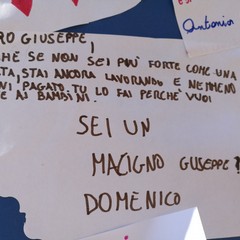 Antonio
RO GIUSEPPE,
CHÉ SE NON SEI PIÙ FORTE COME UNA
TA, STAI ANCORA LAVORANDO E NEMMENO
NI PAGATO. TU LO FAI PERCHÈ VUOI
E AI BAMBINI.
SEI UN
MACIGNO GUSEPPE!
DOMENICO